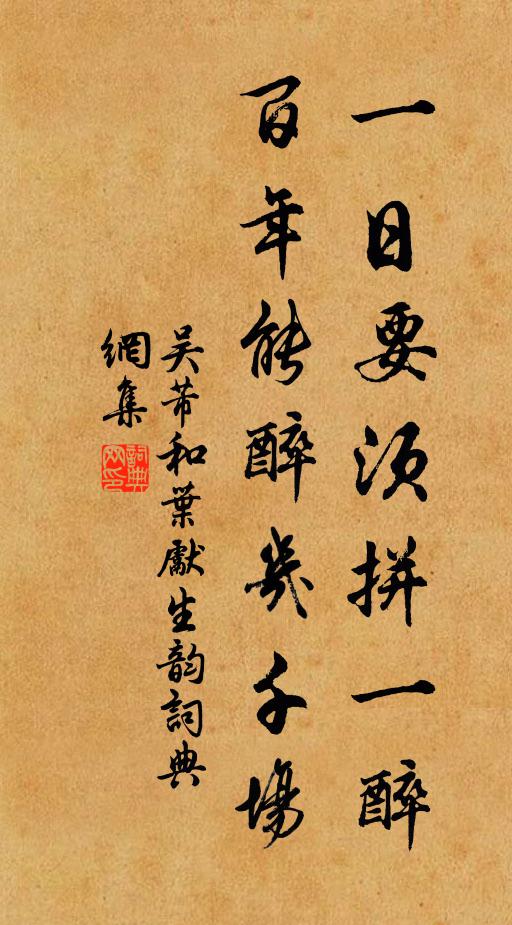 一日要須拼一醉
百年能醉幾千場
吳芾和葉獻生韵詞典
網集
詞典網印